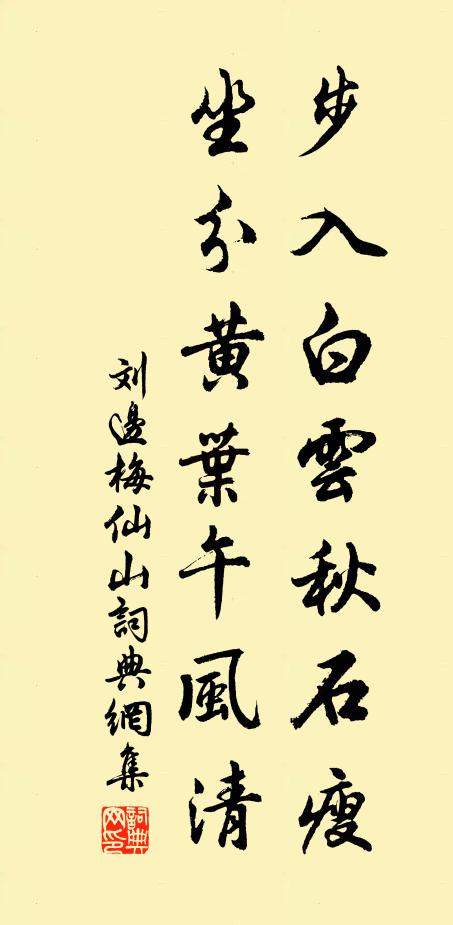 步入白雲秋石瘦
坐分黄葉午風清
刘邊梅仙山詞典網集
詞典網印